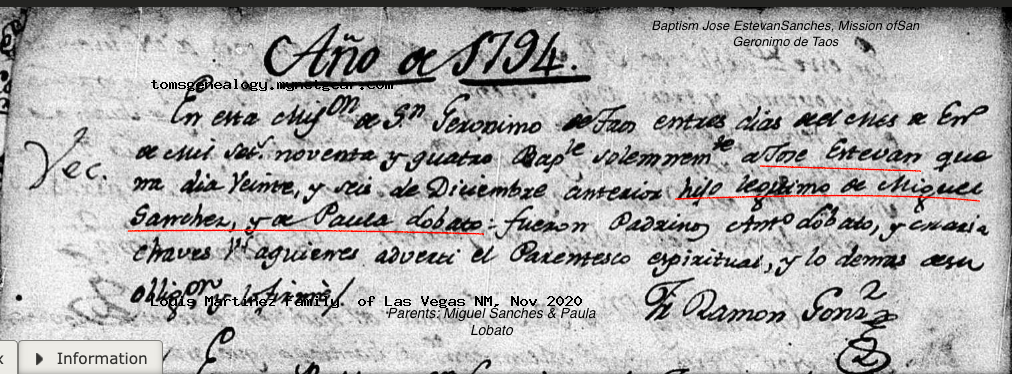 Baptism Jose EstevanSanches, Mission ofSan
Geronimo de Taos
Año de 1794.
tomsgenealogy.mynetgear.com
En esta Misⁿ de Sⁿ Geronimo de Taos en tres dias del Mes de Enº
Vec.
de mil setˢ noventa y quatro Bapᵗᵉ solemnemᵗᵉ a Jose Estevan que
na dia Veinte, y seis de Diciembre anterior hijo legitimo de Miguel
Sanchez, y de Paula Lobato: fueron Padrinos Antº Lobato, y Maria
chaves Vˢ aquienes adverti el Parentesco espiritual, y lo demas desu
obligⁿ y lo firmè
Louis Martinez Family of Las Vegas NM, Nov 2020
Parents: Miguel Sanches & Paula
Lobato
Fr Ramon Gonz
Information